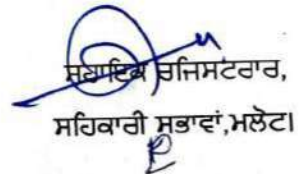 ਸਹਾਇਕ ਰਜਿਸਟਰਾਰ,
ਸਹਿਕਾਰੀ ਸਭਾਵਾਂ,ਮਲੋਟ।